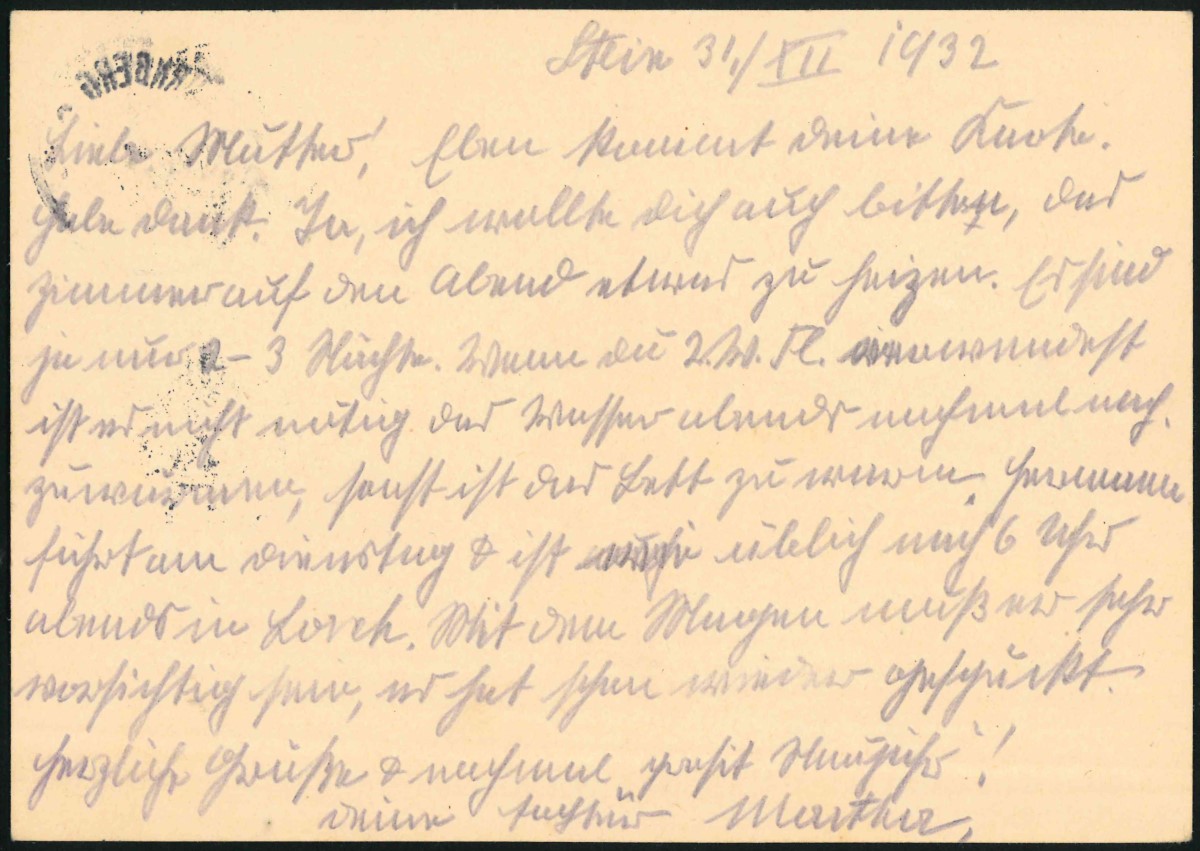 RNBERG
Stein 31./XII 1932
Liebe Mutter! Eben kommt deine Karte.
Habe dank. Ja, ich wollte dich auch bitten, das
Zimmer auf den Abend etwas zu heizen. Es sind
ja nur 2-3 Nächte. Wenn du 2 W. Fl. verwendest
ist es nicht nötig das Wasser abends nochmal nach-
zuwärmen, sonst ist das Bett zu warm. Hermann
fährt am Dienstag & ist üblich nach 6 Uhr
abends in Lorch. Mit dem Magen muß er sehr
vorsichtig sein, es hat schon wieder gespuckt.
Herzliche Grüße & nochmal prosit Neujahr!
deine Tochter Martha.